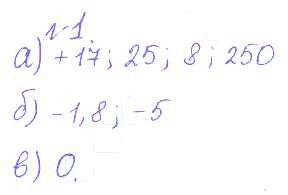 №1.
а) +17; 25; 8; 250
б) -1,8; -5
в) 0.